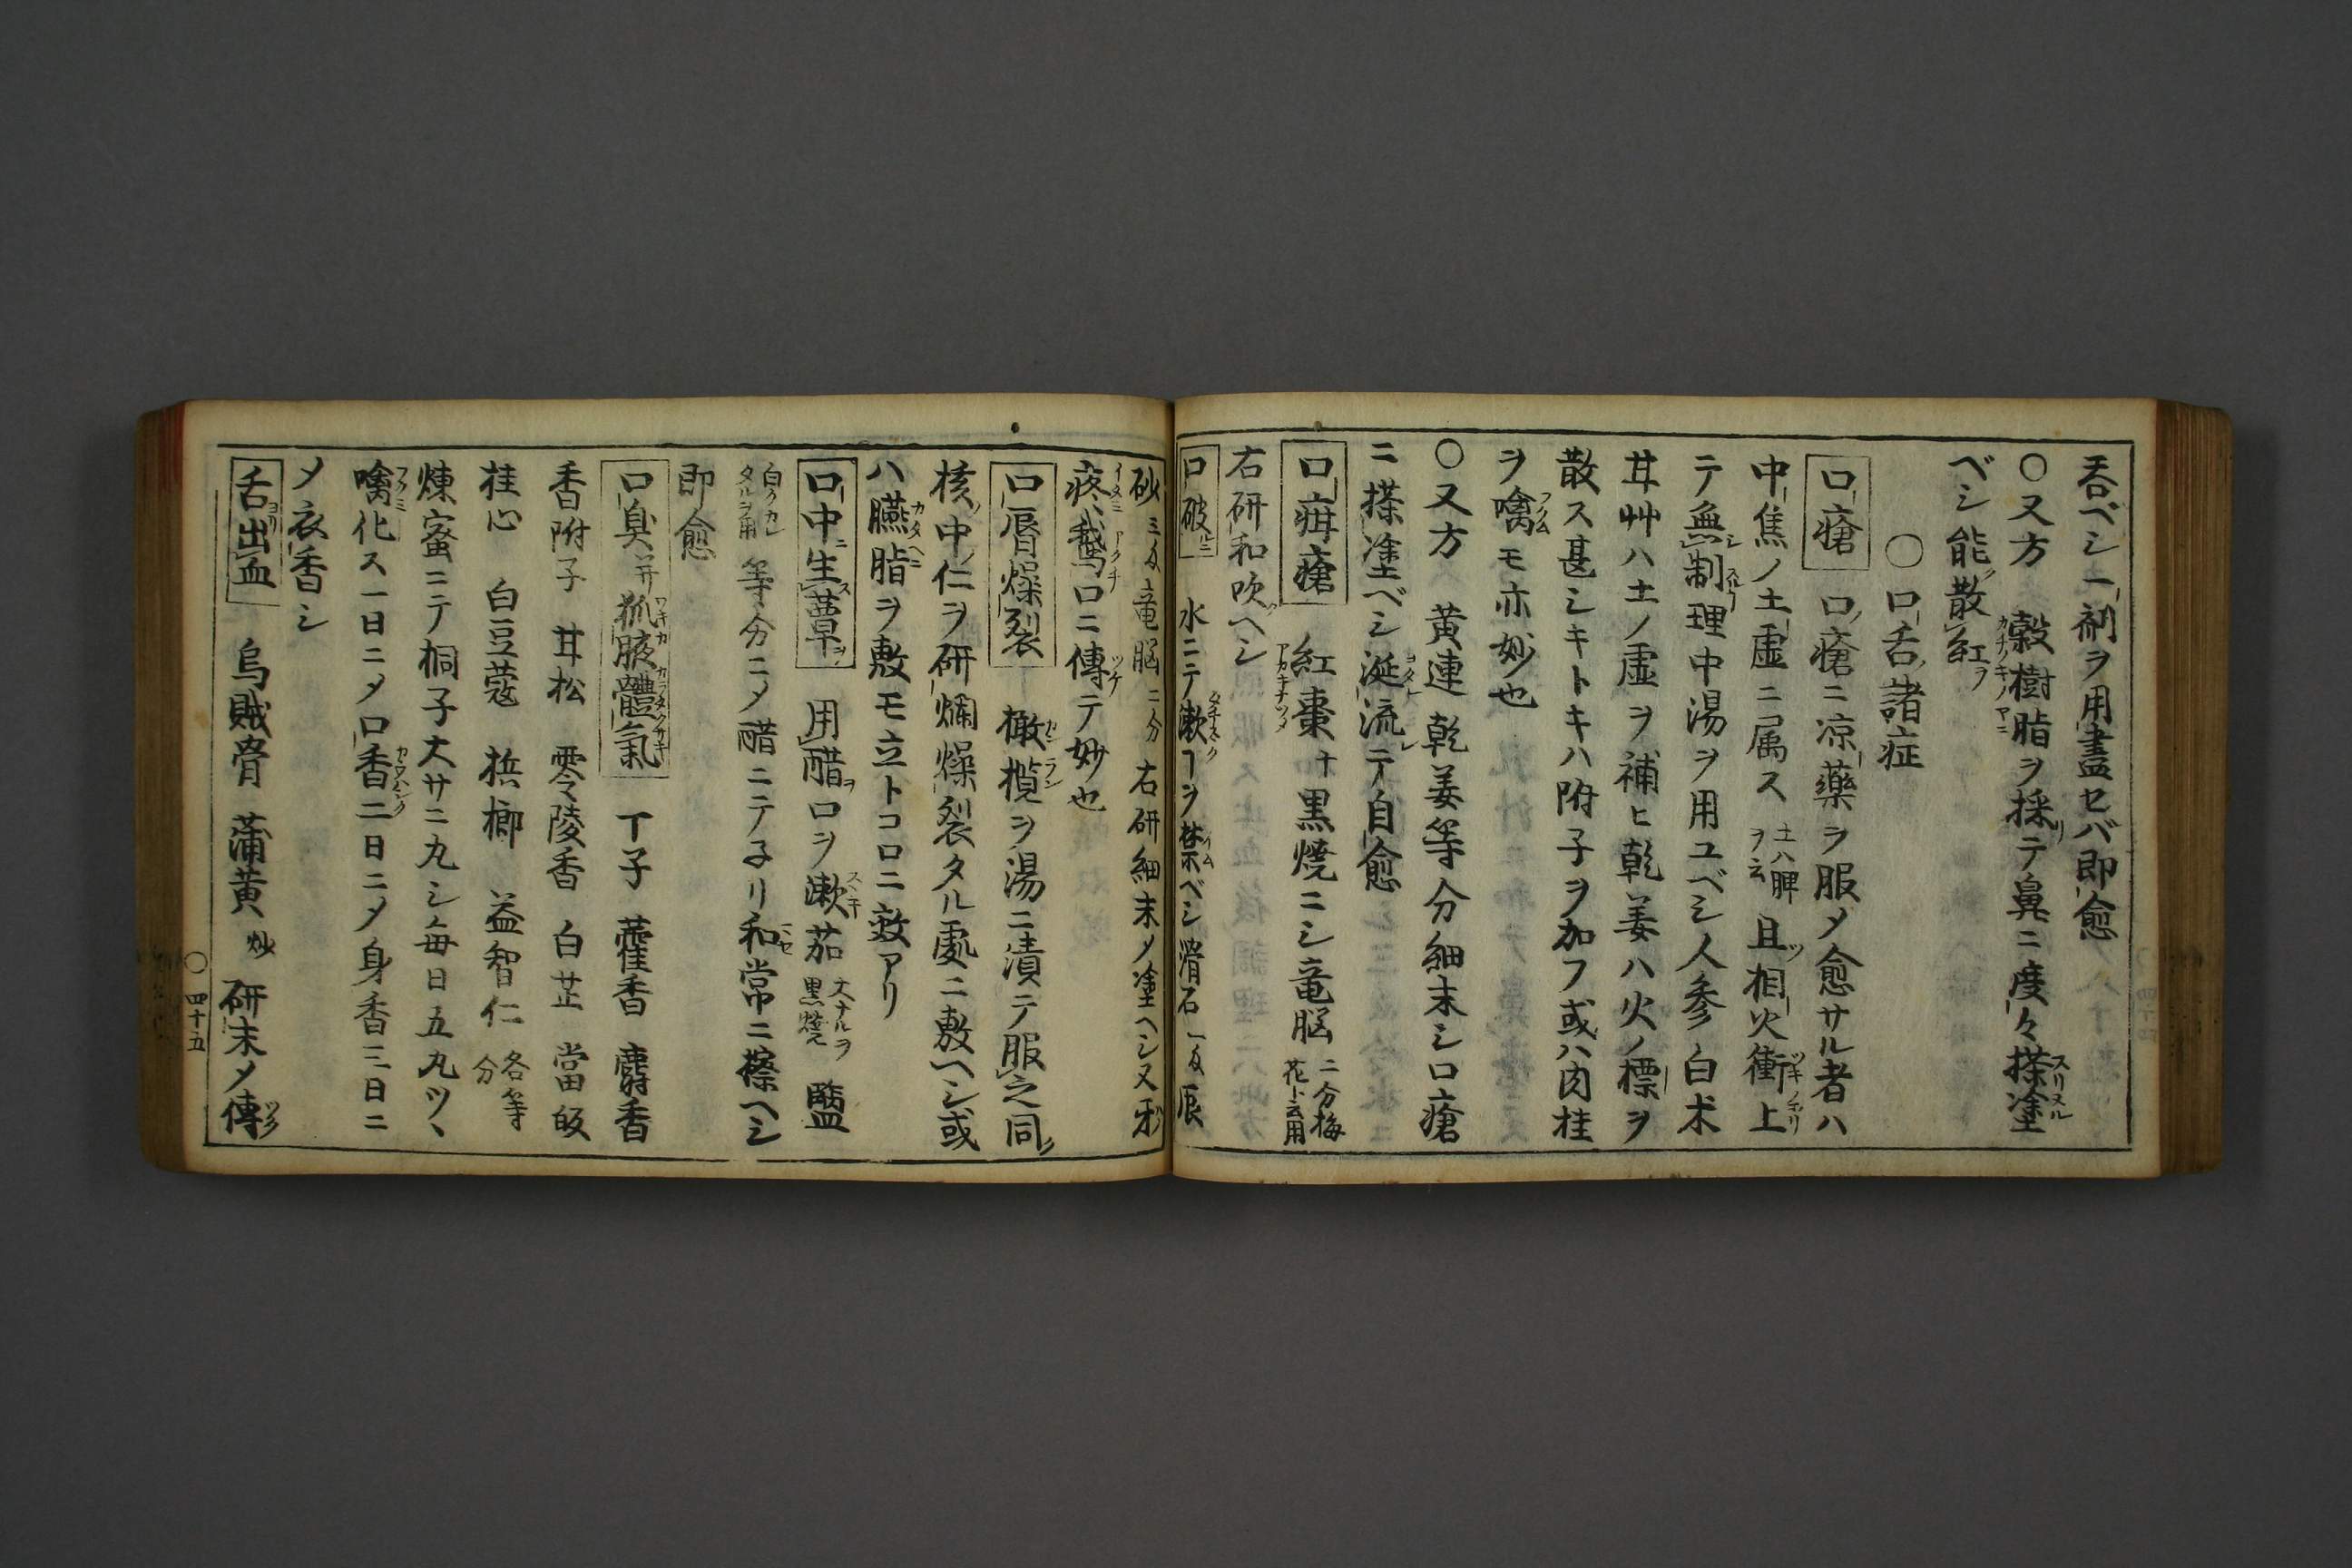 呑ベシ一劑ヲ用盡セバ即愈
〇又方　穀樹脂ヲ採テ鼻ニ度々搽塗
ベシ能散紅ヲ
〇口舌諸症
口瘡　口瘡ニ凉藥ヲ服メ愈サル者ハ
中焦ノ土虛ニ属ス土ハ脾ヲ云且相火衝上
テ無制理中湯ヲ用ユベシ人参白朮
甘艸ハ土ノ虛ヲ補ヒ乾姜ハ火ノ標ヲ
散ス甚シキトキハ附子ヲ加フ或ハ肉桂
ヲ噙モ亦妙也
〇又方　黄連乾姜等分細末シ口瘡
ニ搽塗ベシ涎流テ自愈
口疳瘡　紅棗十黒燒ニシ竜脳二分梅花ト云用
右研和吹ベシ
口破ニ　水ニテ漱ヿヲ禁ベシ滑石
砂　竜脳二分右研細末メ塗ヘシ又
疼鵞口ニ傅テ妙也
口唇燥裂　橄欖ヲ湯ニ漬テ服之同
核中ノ仁ヲ研爛燥裂タル處ニ敷ヘシ或
ハ臙脂ヲ敷モ立トコロニ效アリ
口中生蕈　用醋ヲ口ヲ漱茄大ナルヲ黒燒　鹽
白クカレタルヲ用等分ニメ醋ニテ子リ和常ニ擦ヘシ
即愈
口臭并狐腋體氣　丁子　藿香　麝香
香附子　甘松　零陵香　白芷　當皈
桂心　白豆蔻　梹榔　益智仁各等分
煉蜜ニテ桐子大サニ丸シ毎日五丸ツヽ
噙化ス一日ニメ口香二日ニメ身香三日ニ
メ衣香シ
舌出血　烏賊骨　蒲黄炒　研末メ傅
〇四十五